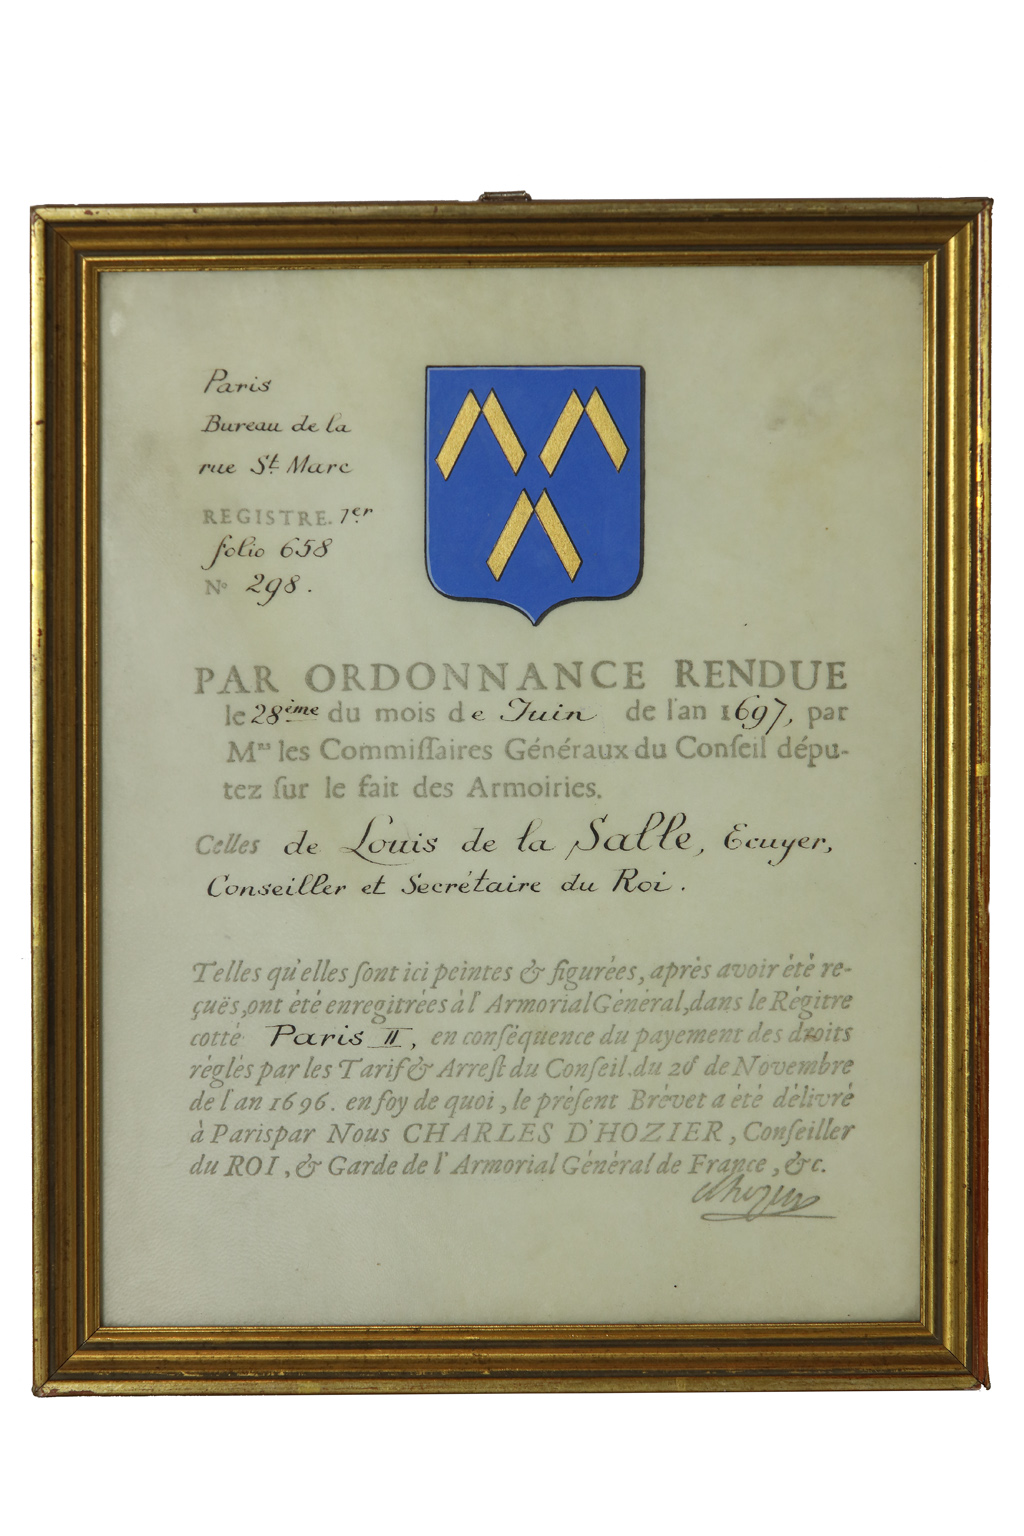 Paris
Bureau de la
rue St. Marc
REGISTRE. 1er
folio 658
No 298.
PAR ORDONNANCE RENDUE
le 28ème du mois de Juin de l'an 1697, par
Mrs les Commiſſaires Généraux du Conſeil dépu-
tez ſur le fait des Armoiries.
Celles de Louis de la Salle, Ecuyer,
Conseiller et Secrétaire du Roi.
Telles qu'elles ſont ici peintes & figurées, après avoir été re-
çuës, ont été enregitrées à l'Armorial Général, dans le Régitre
cotté Paris II, en conſéquence du payement des droits
réglés par les Tarif & Arreſt du Conſeil. du 20 de Novembre
de l'an 1696. en foy de quoi, le préſent Brévet a été délivré
à Paris par Nous CHARLES D'HOZIER, Conſeiller
du ROI, & Garde de l'Armorial Général de France, &c.